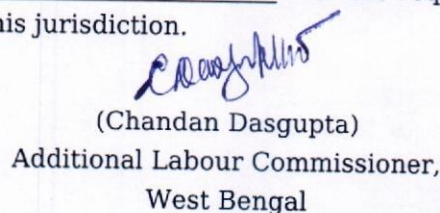 his jurisdiction.
(Chandan Dasgupta)
Additional Labour Commissioner,
West Bengal